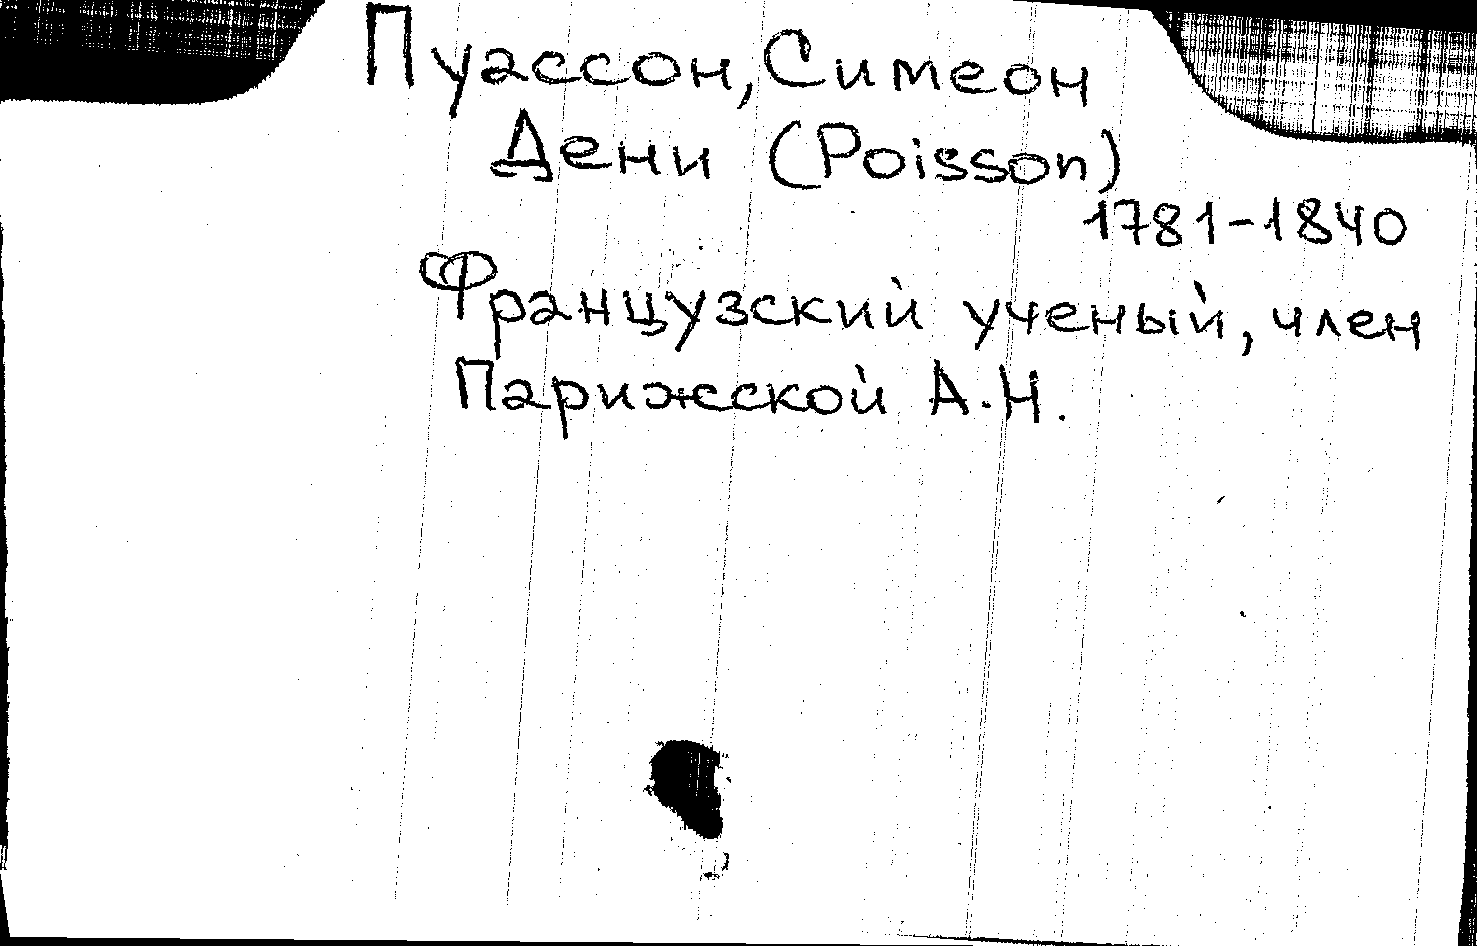 Пуассон, Симеон
Дени (Poisson)
1781-1840
Французский ученый, член
Парижской А.Н.